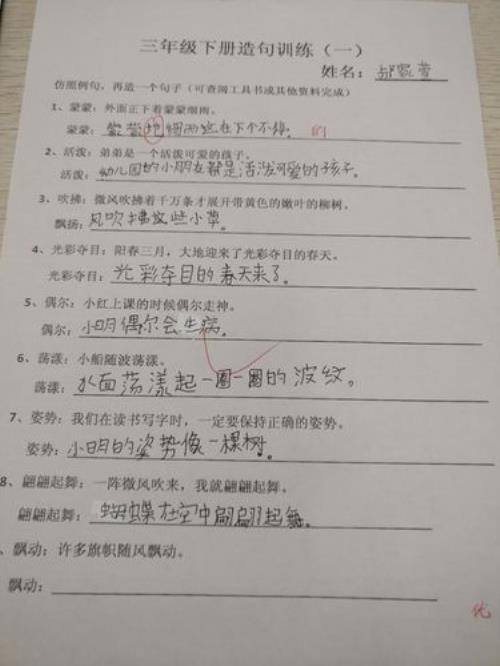 三年级下册造句训练（一）
姓名：
仿照例句，再造一个句子（可查阅工具书或其他资料完成）
1、蒙蒙：外面正下着蒙蒙细雨。
蒙蒙：蒙蒙地细雨还在下个不停。 的
2、活泼：弟弟是一个活泼可爱的孩子。
活泼：幼儿园的小朋友都是活泼可爱的孩子。
3、吹拂：微风吹拂着千万条才展开带黄色的嫩叶的柳树。
飘扬：风吹拂这些小草。
4、光彩夺目：阳春三月，大地迎来了光彩夺目的春天。
光彩夺目：光彩夺目的春天来了。
5、偶尔：小红上课的时候偶尔走神。
偶尔：小明偶尔会生病。
6、荡漾：小船随波荡漾。
荡漾：水面荡漾起一圈一圈的波纹。
7、姿势：我们在读书写字时，一定要保持正确的姿势。
姿势：小明的姿势像一棵树。
8、翩翩起舞：一阵微风吹来，我就翩翩起舞。
翩翩起舞：蝴蝶在空中翩翩起舞。
、飘动：许多旗帜随风飘动。
飘动：
优